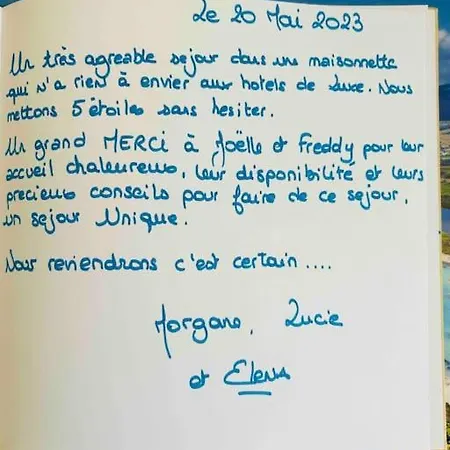 Le 20 Mai 2023
Un très agreable sejour dans une maisonnette
qui n'a rien à envier aux hotels de luxe. Nous
mettons 5 étoiles sans hesiter.
Un grand MERCI à Joëlle et Freddy pour leur
accueil chaleureux, leur disponibilité et leurs
precieux conseils pour faire de ce sejour,
un sejour Unique.
Nous reviendrons c'est certain....
Morgane, Lucie
et Elena